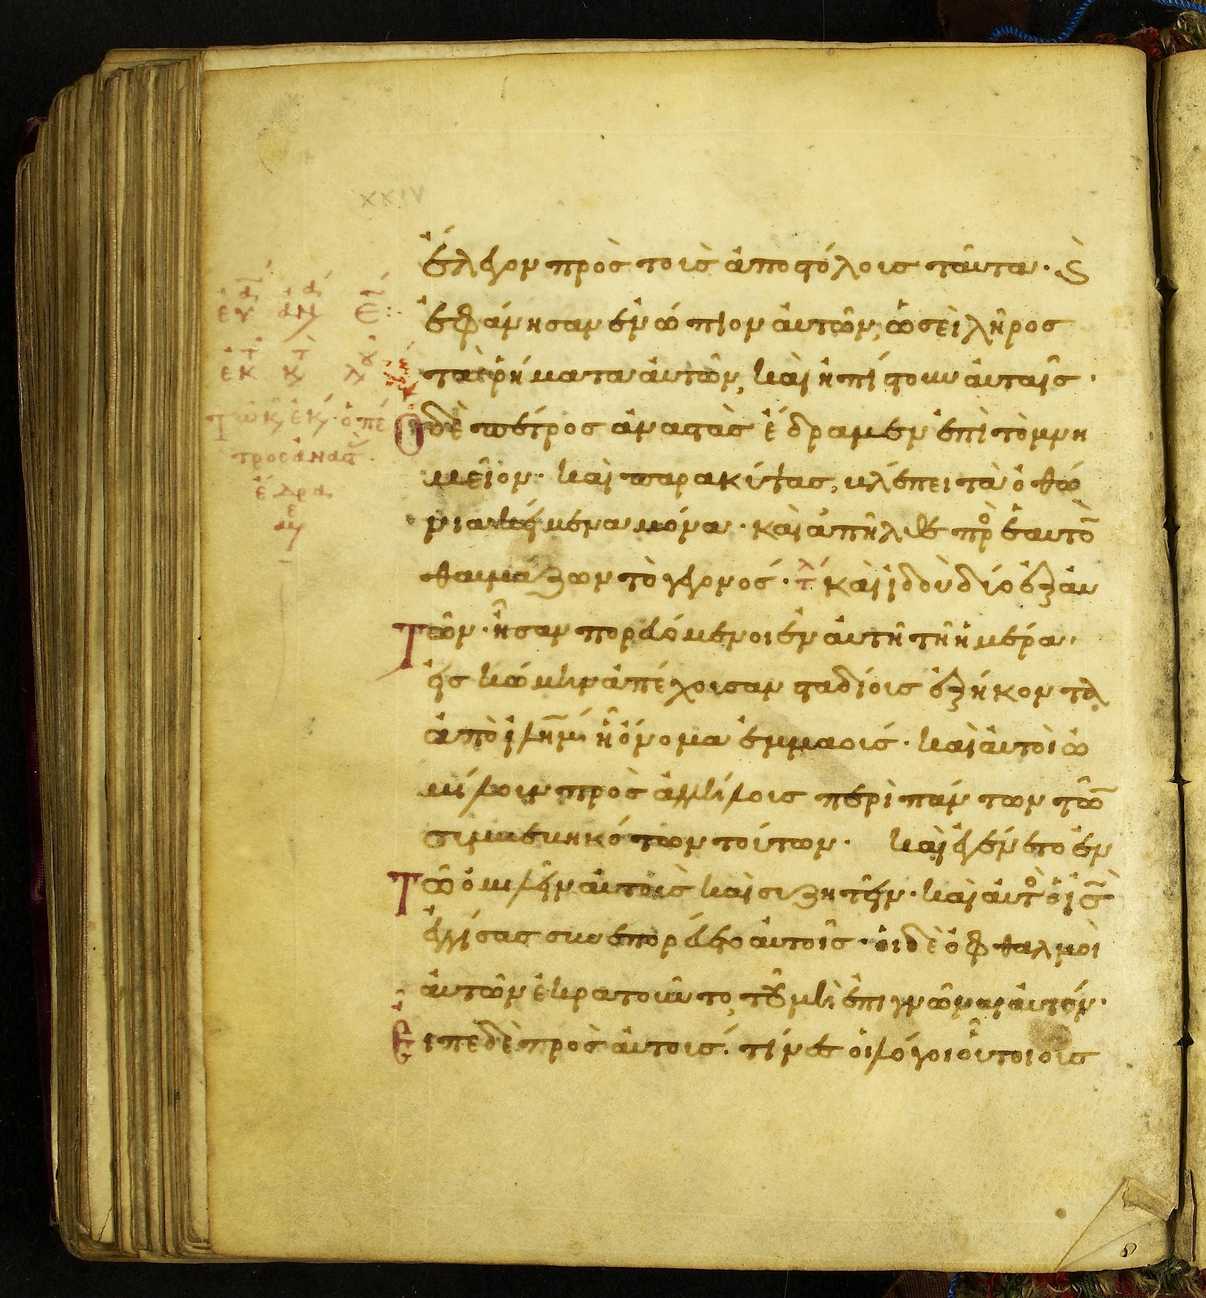 XXIV
ἔλεγον πρὸς τοὺς ἀποστόλους ταῦτα· καὶ
ἐφάνησαν ἐνώπιον αὐτῶν, ὡσεὶ λῆρος
τὰ ῥήματα αὐτῶν, καὶ ἠπίστουν αὐταῖς·
Ὁ δὲ πέτρος ἀναστὰς ἔδραμεν ἐπὶ τὸ μνη
μεῖον· καὶ παρακύψας, βλέπει τὰ ὀθό
νια κείμενα μόνα· καὶ ἀπῆλθε πρὸ ἑαυτὸ
θαυμάζων τὸ γεγονός· τέλ καὶ ἰδοὺ δύο ἐξ αυ
Τῶν· ἦσαν πορευόμενοι ἐν αὐτῆ τῆ ἡμέρα·
εἰς κώμην ἀπέχουσαν σταδίους ἑξήκοντα
ἀπὸ ἱλημ· ἧ ὄνομα ἐμμαούς· καὶ αὐτοὶ ὡ
μίλουν πρὸς ἀλλήλους περὶ πάντων τῶ
συμβεβηκότων τούτων· καὶ ἐγένετο ἐν
Τῶ ὁμιλεῖν αὐτοὺς καὶ συζητεῖν· καὶ αὐτὸ ὁ ἰς
ἐγγίσας συνεπορεύετο αὐτοῖς· οἱ δὲ ὀφθαλμοὶ
αὐτῶν ἐκρατοῦντο, τοῦ μὴ ἐπιγνῶναι αὐτόν·
Εἶπε δὲ πρὸς αὐτούς· τίνες οἱ λόγοι οὗτοι οὓς